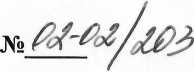 № 02-02/203